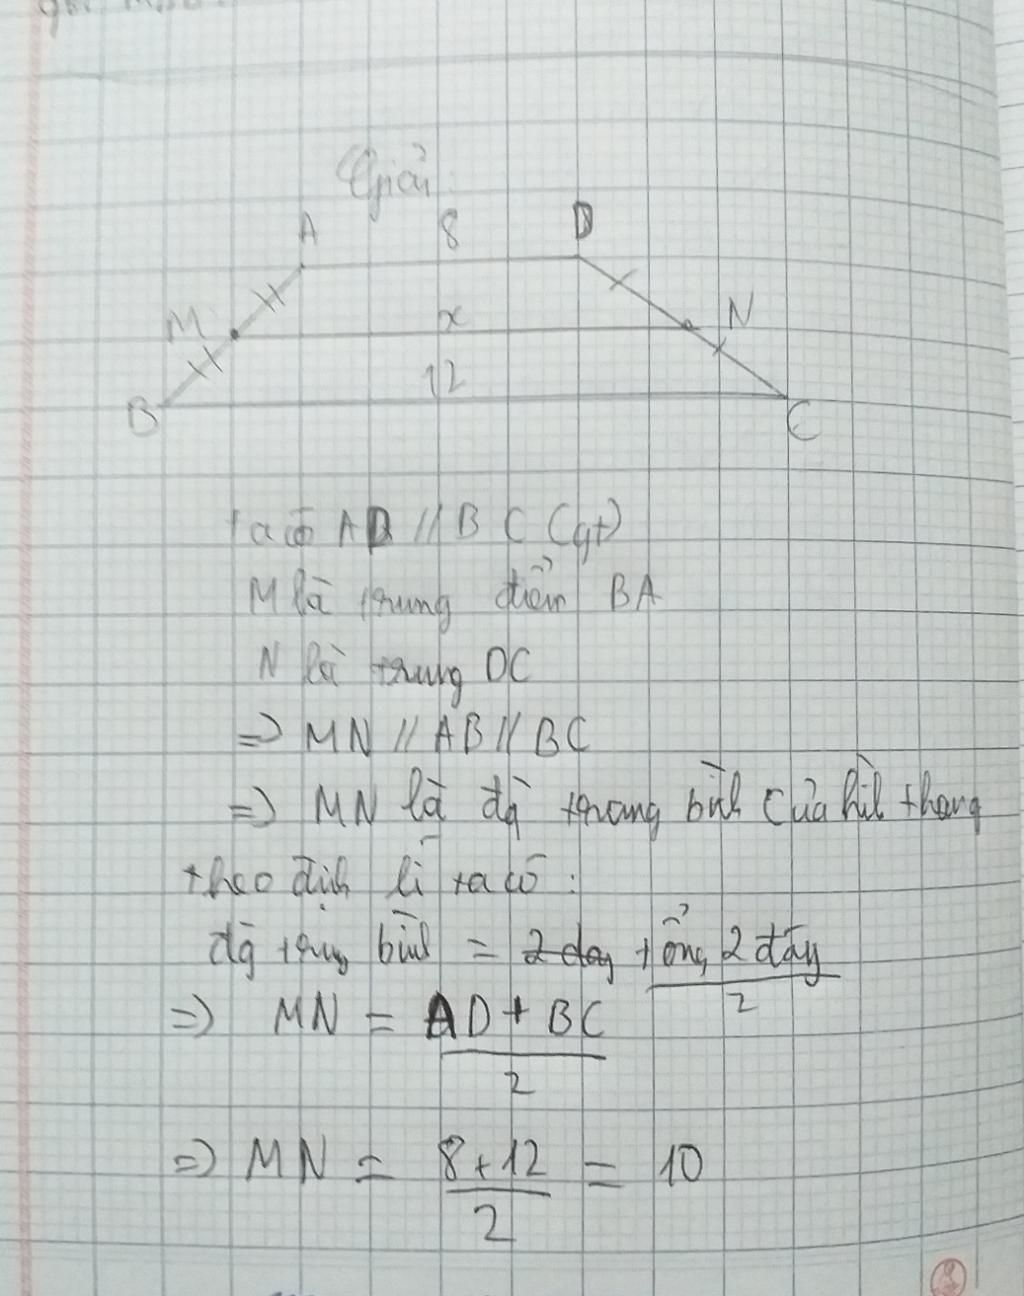 Giải
A 8 D
M x N
12
B C
ta có AD // BC (gt)
M là trung điểm BA
N là trung DC
=> MN // AB // BC
=> MN là đg trung bìh của hìh thang
theo địh lí ta có :
đg trug bìh = 2 day tổng 2 đáy / 2
=> MN = AD + BC / 2
=> MN = 8+12 / 2 = 10